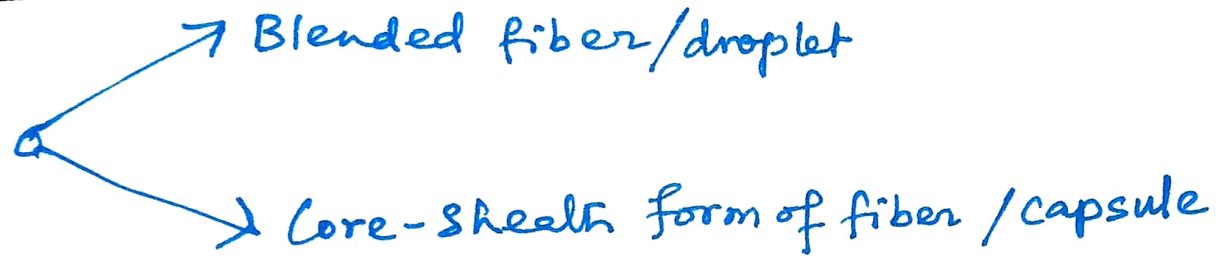 Blended fiber/droplet
Core-sheath form of fiber/capsule